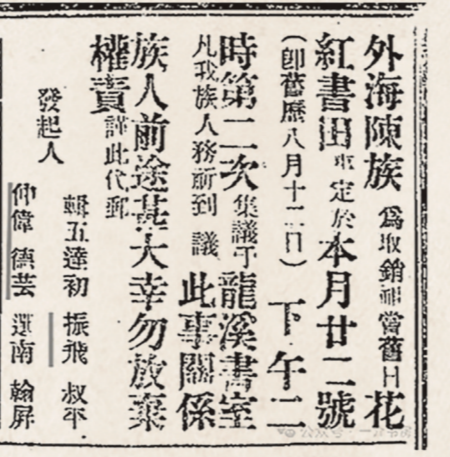 外海陳族為取銷神嘗舊日花
紅書田事定於本月廿二號
(即舊歷八月十二日)下午二
時第二次集議于龍溪書室
凡我族人務祈到議此事關係
族人前途甚大幸勿放棄
權責謹此代郵
發起人
輯五 達初 振飛 叔平
仲偉 德芸 運南 翰屏